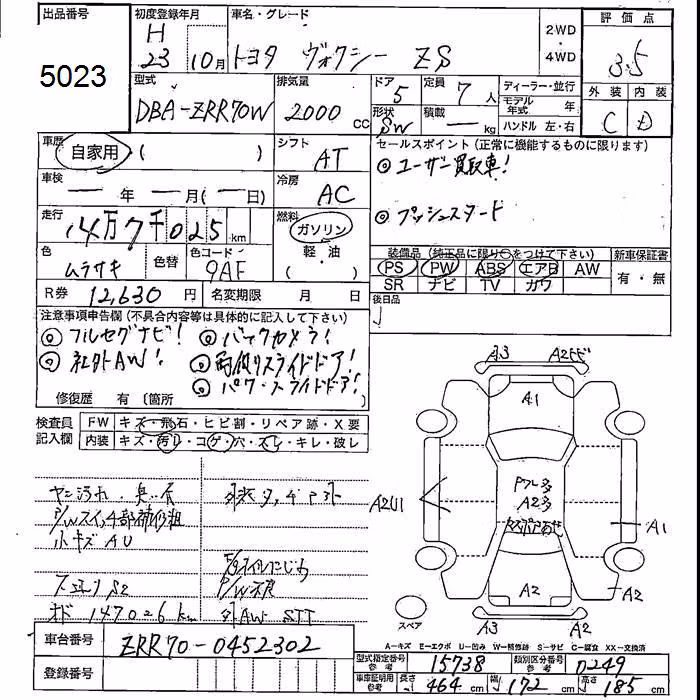 出品番号 初度登録年月 車名・グレード 2WD ・ 4WD 評価点
5023 H 23 10月 トヨタ ヴォクシー ZS 3.5
型式 排気量 ドア 定員 ディーラー・並行 外装 内装
DBA-ZRR70W 2000cc 5 7人 モデル年式 年
形状 SW 積載 ー kg ハンドル 左・右 C D
車歴 自家用 ( ) シフト AT セールスポイント(正常に機能するものに限ります)
◎ユーザー買取車!
車検 ー年 ー月(ー日) 冷房 AC
◎プッシュスタート
走行 14万7千025km 燃料 ガソリン 軽油 ( )
装備品(純正品に限り○をつけて下さい) 新車保証書
色 ムラサキ 色替 色コード 9AF PS PW ABS エアB AW 有・無
SR ナビ TV カワ
R券 12,630円 名変期限 月 日 後日品
注意事項申告欄(不具合内容等は具体的に記入して下さい)
◎フルセグナビ! ◎バックカメラ!
◎社外AW! ◎両側スライドドア!
◎パワースライドドア!
修復歴 有 〔箇所
検査員記入欄 FW キズ・飛石・ヒビ割・リペア跡・X要
内装 キズ・汚レ・コゲ・穴・スレ・キレ・破レ
ヤニ汚れ・臭い有
小キズ AU
オド 147026km 外AW STT
A3 A2
A1
A2U1
A2多
A1
A2 A2
A3 A2
スペア
A-キズ E-エクボ U-凹み W-補修跡 S-サビ C-腐食 XX-交換済
車台番号 ZRR70-0452302
型式指定番号 参考 15738 類別区分番号 参考 0249
登録番号 車庫証明用 参考 長さ 464cm 幅 172cm 高さ 185cm